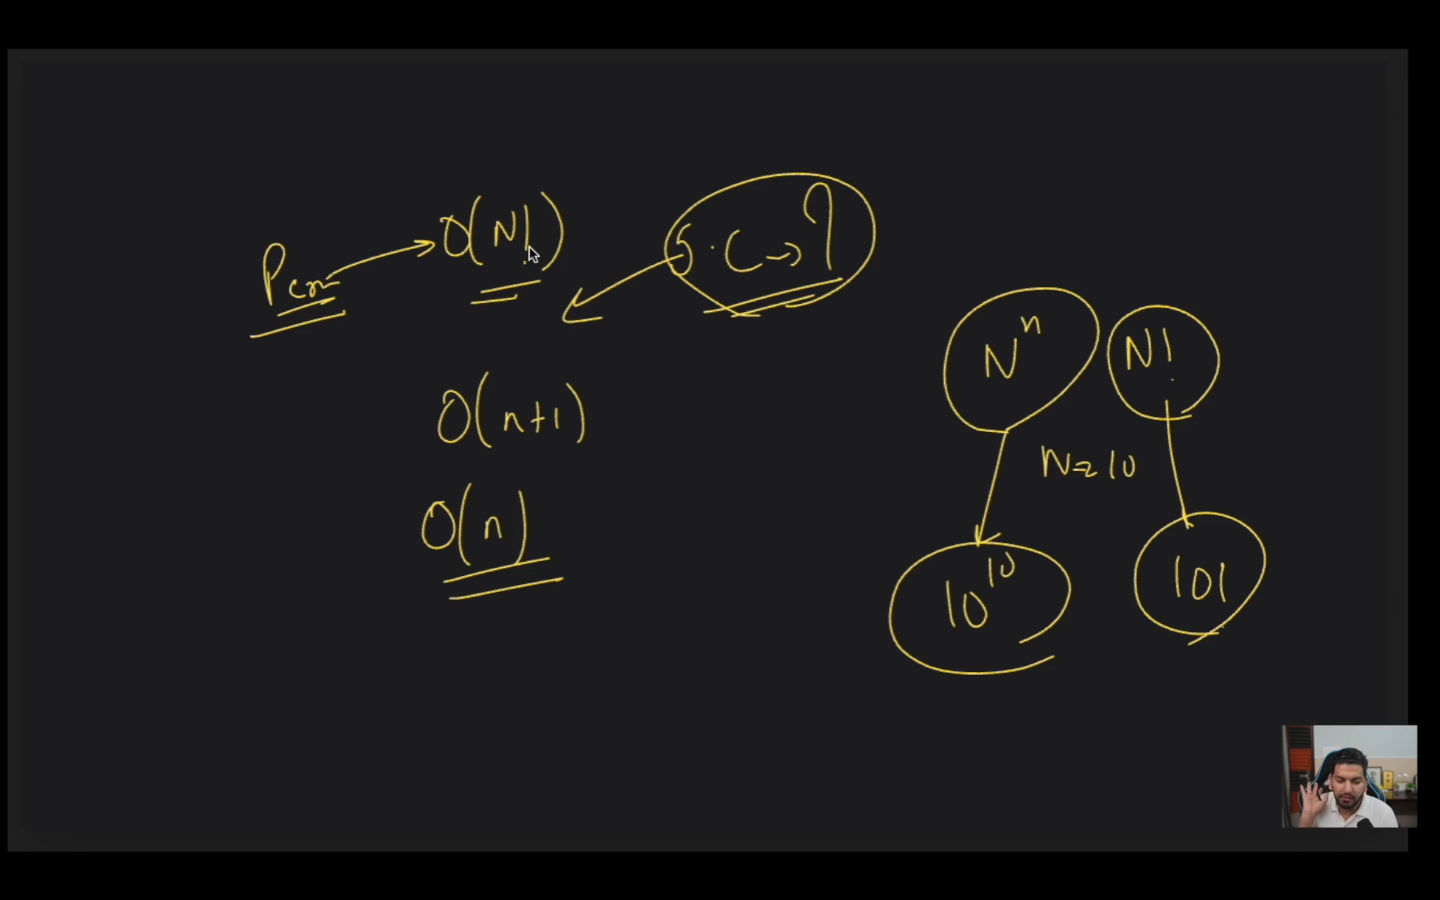 Perm → O(N!)
S.C → ?
O(n+1)
O(n)
Nⁿ N!
N=10
10¹⁰ 10!